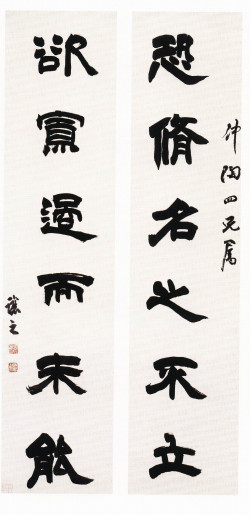 仲陶四兄屬
恐脩名之不立
欲寡過而未能
讓之